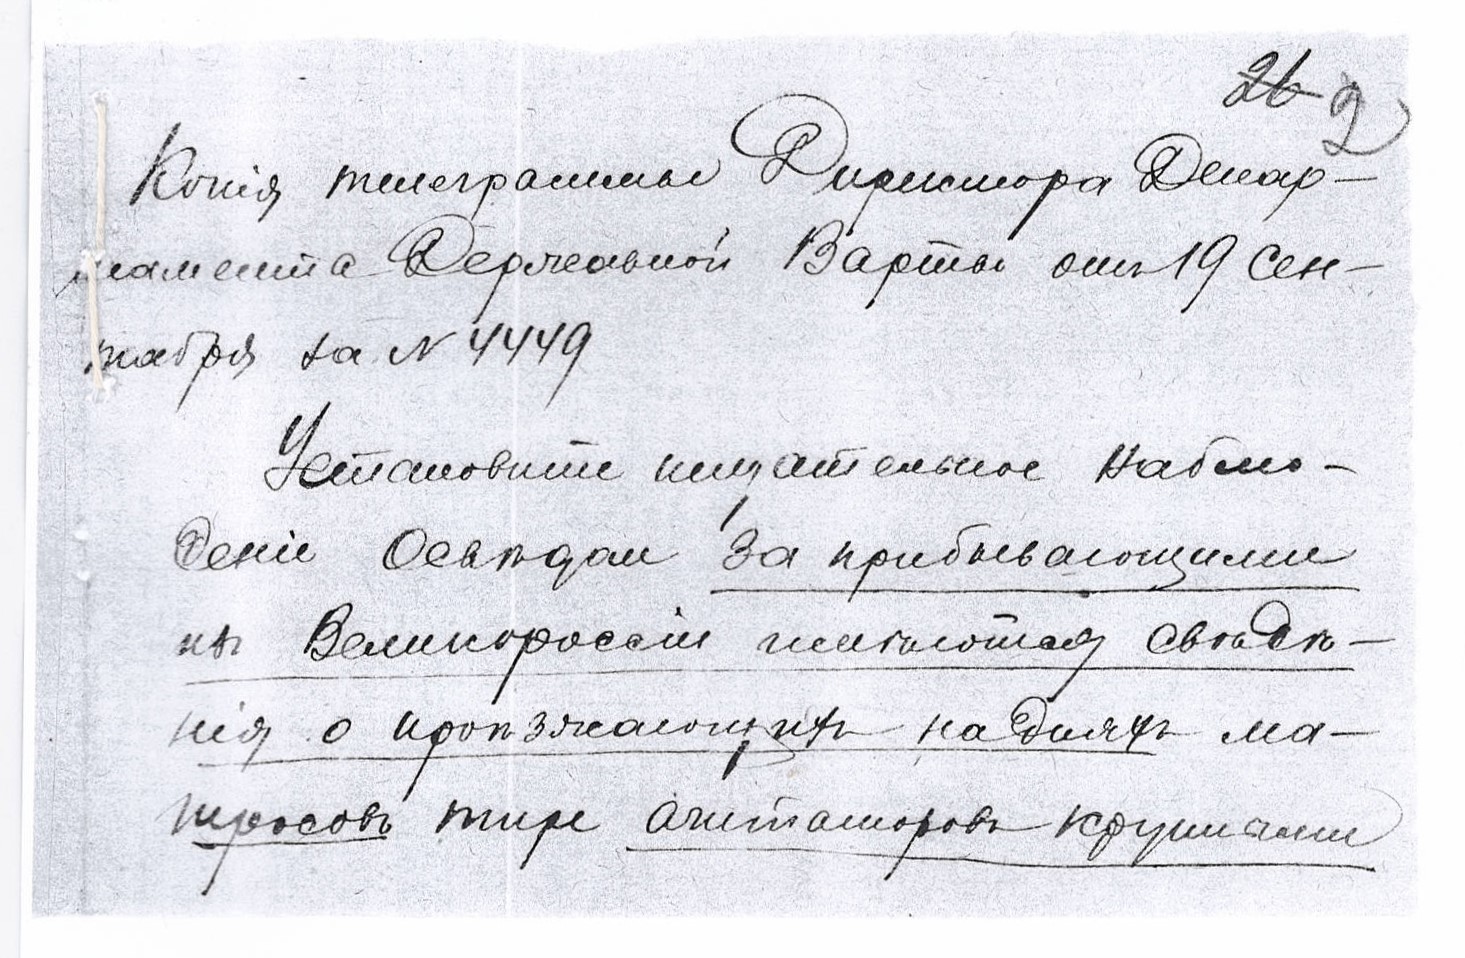 2б 2
Копія телеграммы Директора Депар-
тамента Державной Варты отъ 19 Сен-
тября за N 4449
Установите тщательное наблю-
деніе Осведом за прибывающими
изъ Великороссіи имеются сведе-
нія о проезжающихъ на дняхъ ма-
тросовъ тире агитаторовъ крупными